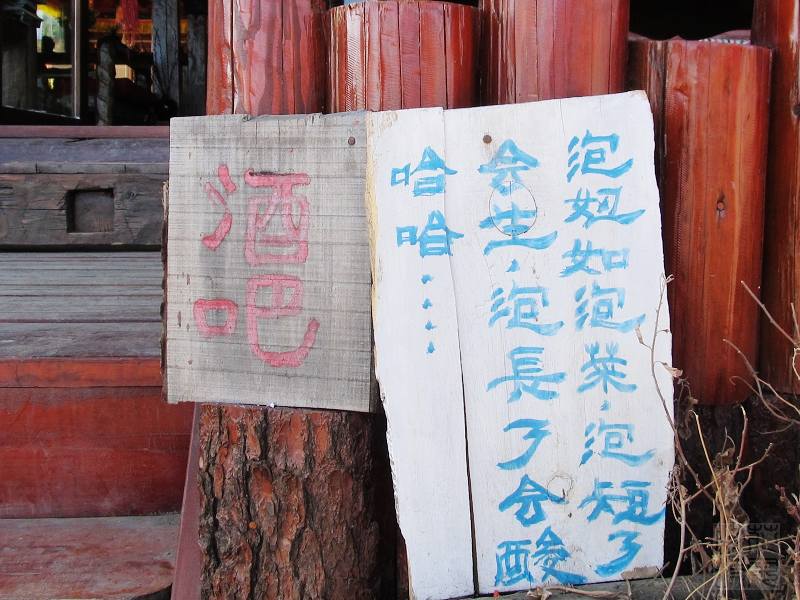 酒吧
泡妞如泡菜,泡短了
会生,泡長了会酸
哈哈....